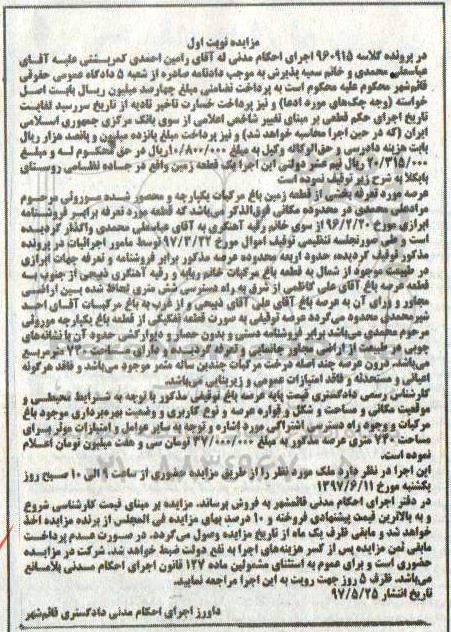 مزایده نوبت اول
در پرونده کلاسه ۹۶۰۹۱۵ اجرای احکام مدنی له آقای رامین احمدی کمرپشتی علیه آقای
عباسعلی محمدی و خانم سمیه پذیرش به موجب دادنامه صادره از شعبه ۵ دادگاه عمومی حقوقی
قائم‌شهر محکوم علیه محکوم است به پرداخت تضامنی مبلغ چهارصد میلیون ریال بابت اصل
خواسته (وجه چک‌های مورد ادعا) و نیز پرداخت خسارت تاخیر تادیه از تاریخ سررسید لغایت
تاریخ اجرای حکم قطعی بر مبنای تغییر شاخص اعلامی از سوی بانک مرکزی جمهوری اسلامی
ایران (که در حین اجرا محاسبه خواهد شد) و نیز پرداخت مبلغ پانزده میلیون و پانصد هزار ریال
بابت هزینه دادرسی و حق‌الوکاله وکیل به مبلغ ۱۰/۸۰۰/۰۰۰ریال در حق محکوم له و مبلغ
۲۰/۳۱۵/۰۰۰ ریال نیم‌عشر دولتی این اجرا یک قطعه زمین واقع در جاده نظامی روستای
بابکلا به شرح زیر توقیف نموده است
عرصه مورد تعرفه بخشی از قطعه زمین باغ مرکبات یکپارچه و محصور شده موروثی مرحوم
مرادعلی محمدی در محدوده مکانی فوق‌الذکر می‌باشد که قطعه مورد تعرفه برابر فروشنامه
ابرازی مورخ ۹۶/۲/۲۰ از سوی خانم رقیه آهنگری به آقای عباسعلی محمدی واگذار گردیده
است و طی صورتجلسه تنظیمی توقیف اموال مورخ ۹۷/۳/۲۲ توسط مامور اجرائیات در پرونده
مذکور توقیف گردیده، حدود اربعه محدوده عرصه مذکور برابر فروشنامه و تعرفه جهات ابرازی
در طبیعت موجود از شمال به قطعه باغ مرکبات خانم ربابه و رقیه آهنگری ذبیحی از جنوب به
قطعه عرصه باغ آقای علی کاظمی از شرق به راه دسترسی شش متری لحاظ شده بین اراضی
مجاور و ورای آن به عرصه باغ آقای علی آقای ذبیحی و از غرب به باغ مرکبات آقای
شیرمحمدی محدود می‌گردد عرصه توقیفی به صورت قطعه تفکیکی از قطعه باغ یکپارچه موروثی
مرحوم محمدی می‌باشد برابر فروشنامه دستی و بدون حصار و دیوارکشی حدود آن با نشانه‌های
چوبی در طبیعت از اراضی مجاور جانمایی و تعرفه گردیده و دارای مساحت ۷۴۰ متر مربع
می‌باشد، درون عرصه چند اصله درخت مرکبات چندین ساله مثمر موجود می‌باشد و فاقد هرگونه
اعیانی و مستحدثه و فاقد امتیازات عمومی و زیربنایی می‌باشد.
کارشناس رسمی دادگستری قیمت پایه عرصه باغ توقیفی مذکور با توجه به شرایط محیطی و
موقعیت مکانی و مساحت و شکل و قواره عرصه و نوع کاربری و وضعیت بهره‌برداری موجود باغ
مرکبات و وجود راه دسترسی اشتراکی مورد اشاره و توجه به سایر عوامل و امتیازات موثر برای
مساحت ۷۴۰ متری عرصه مذکور به مبلغ ۳۷/۰۰۰/۰۰۰ تومان سی و هفت میلیون تومان اعلام
نموده است.
این اجرا در نظر دارد ملک مورد نظر را از طریق مزایده حضوری از ساعت ۹ الی ۱۰ صبح روز
یکشنبه مورخ ۱۳۹۷/۶/۱۱
در دفتر اجرای احکام مدنی قائمشهر به فروش برساند، مزایده بر مبنای قیمت کارشناسی شروع
و به بالاترین قیمت پیشنهادی فروخته و ۱۰ درصد بهای مزایده فی المجلس از برنده مزایده اخذ
خواهد شد و مابقی ظرف یک ماه از تاریخ مزایده وصول می‌گردد. در صورت عدم پرداخت
مابقی ثمن مزایده پس از کسر هزینه‌های اجرا به نفع دولت ضبط خواهد شد. شرکت در مزایده
حضوری است و برای عموم به استثنای مشمولین ماده ۱۲۷ قانون اجرای احکام مدنی بلامانع
می‌باشد. ظرف ۵ روز جهت رویت به این اجرا مراجعه نمایید.
تاریخ انتشار ۹۷/۵/۲۵
دادورز اجرای احکام مدنی دادگستری قائم‌شهر